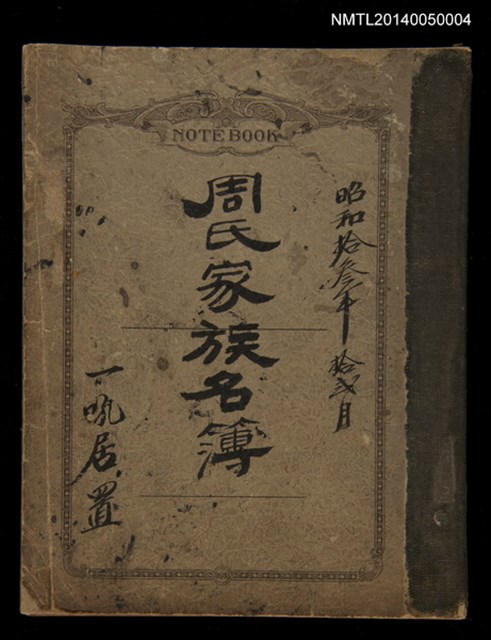 NMTL20140050004
NOTE BOOK
昭和拾叁年 拾弍月
周氏家族名簿
一吼居置